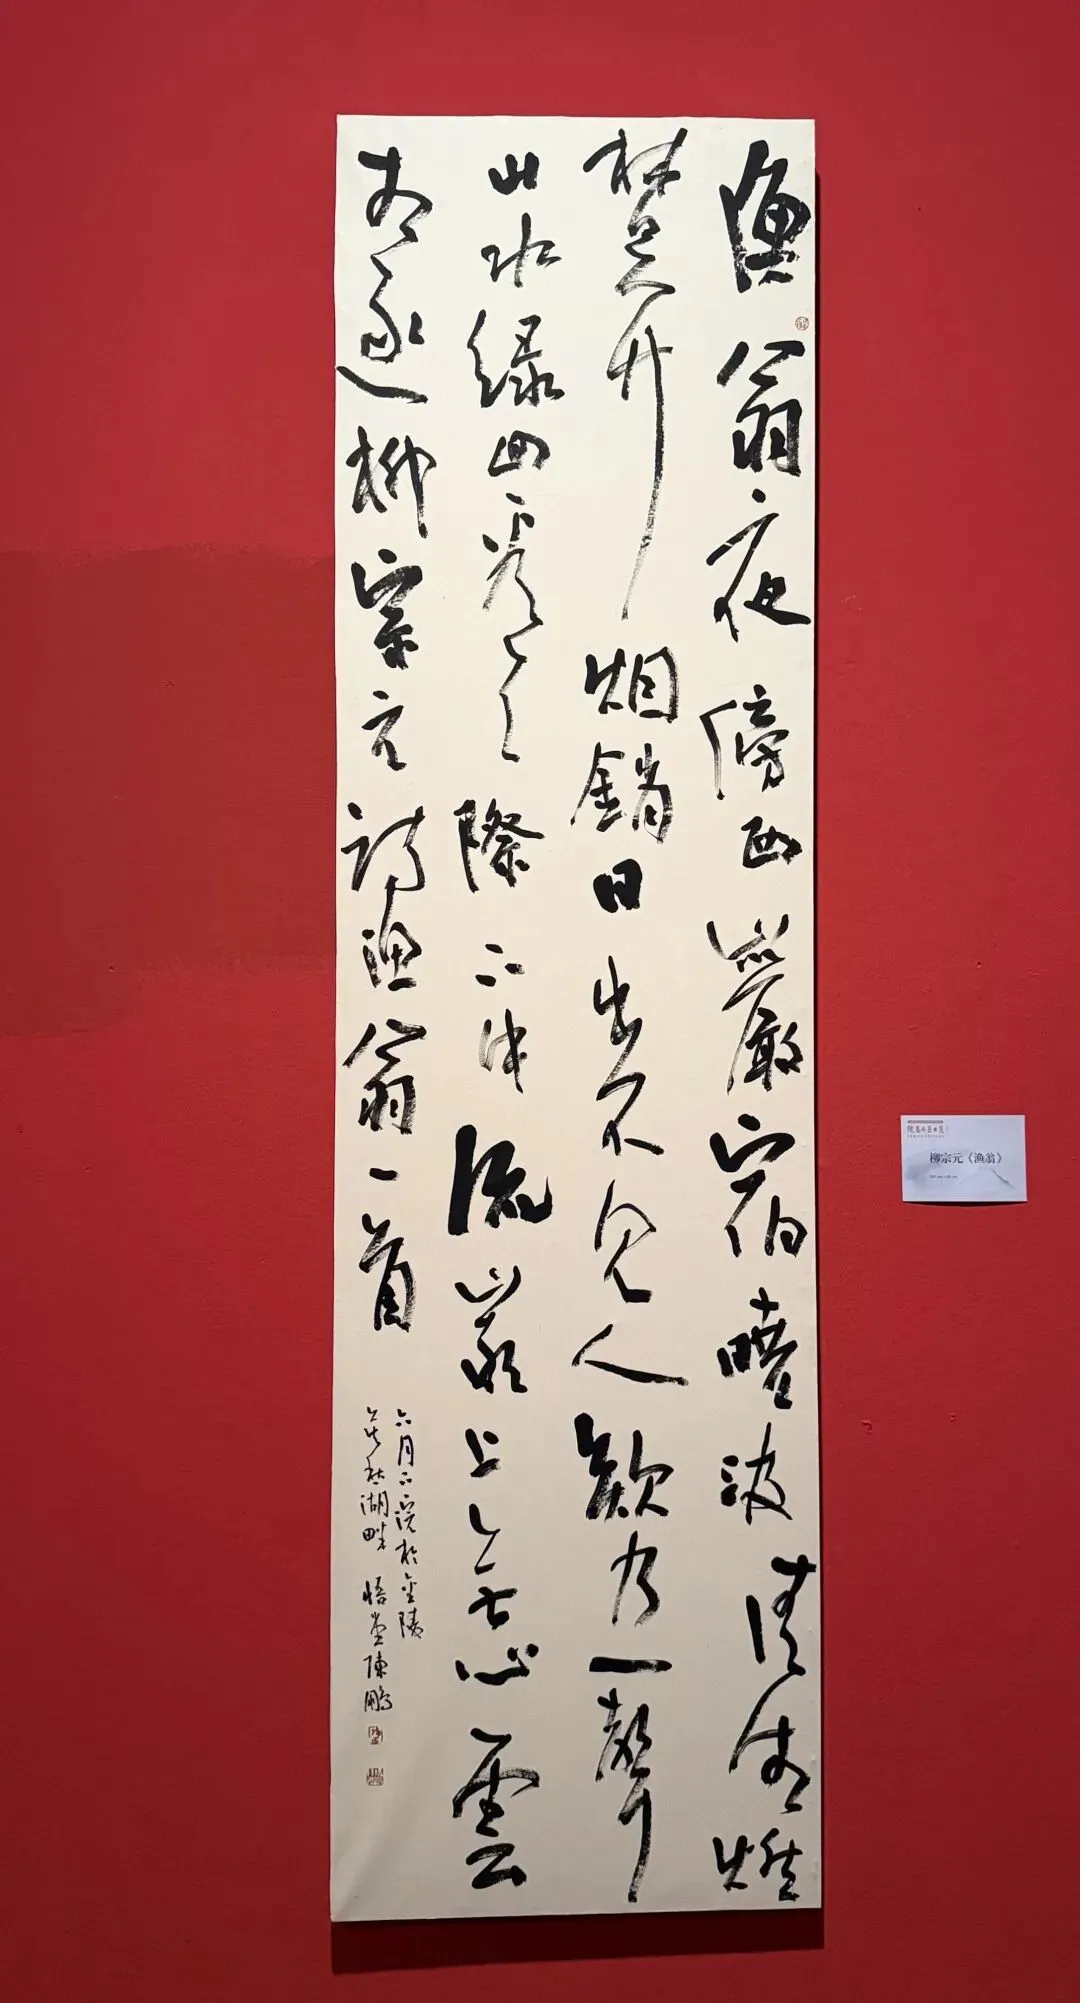 漁翁夜傍西巖宿曉波清湘燃
楚竹烟銷日出不見人欸乃一聲
山水綠迴看天際下中流巖上無心雲
相逐柳宗元詩漁翁一首
六月六院於金陵
莫愁湖畔 悟堂陳鵬
柳宗元《渔翁》